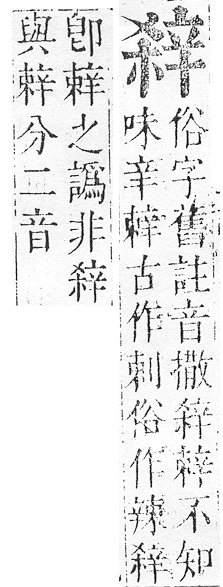 俗字舊註音撒辢不知
味辛辢古作剌俗作辣
卽辢之譌非
與辢分二音